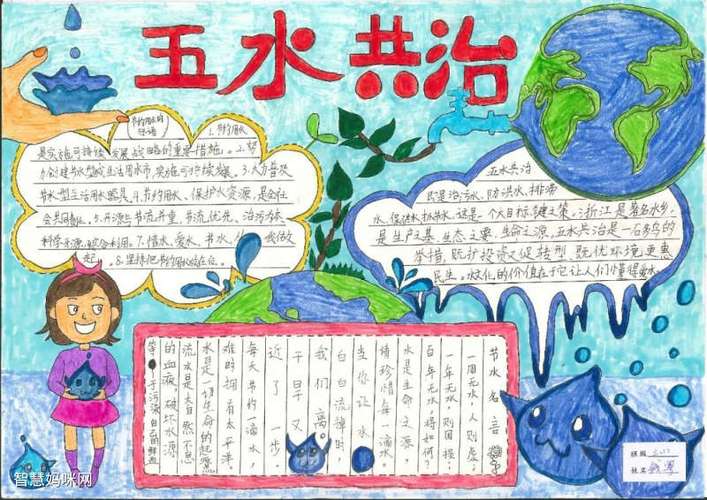 五水共治
节约用水的
标语
1.节约用水
是实施可持续发展战略的重要措施。2.努
力创建节水型城市
实施可持续发展。3.大力普及
节水型生活用水器具。4.节约用水、保护水资源,是全社
会共同责任。5.开源与节流并重,节流优先、治污为本
科学开源、综合利用。7.惜水、爱水、节水、从我做
起。8.坚持把节约用水放在
五水共治
是治污水、防洪水、排涝
水、保供水、抓节水。这是一个大目标
浙江是著名水乡,
是生产之基、生态之要、生命之源。五水共治是一石多鸟的
举措,既扩投资又促转型,既优环境更惠
民生。水文化的价值在于它让人们懂得
节水名言
一周无水,人则虑;
一年无水,则国撼;
百年无水,将如何?
水是生命之源,
请珍惜每一滴水。
当你让水
白白流掉时
我们离
干旱又
近了一步。
每天节约一滴水
难时拥有太平洋。
水是一切生命的起源
流水是大自然不息
的血液,破坏水源
等于污染自己的鲜血
班级
姓名
智慧妈咪网